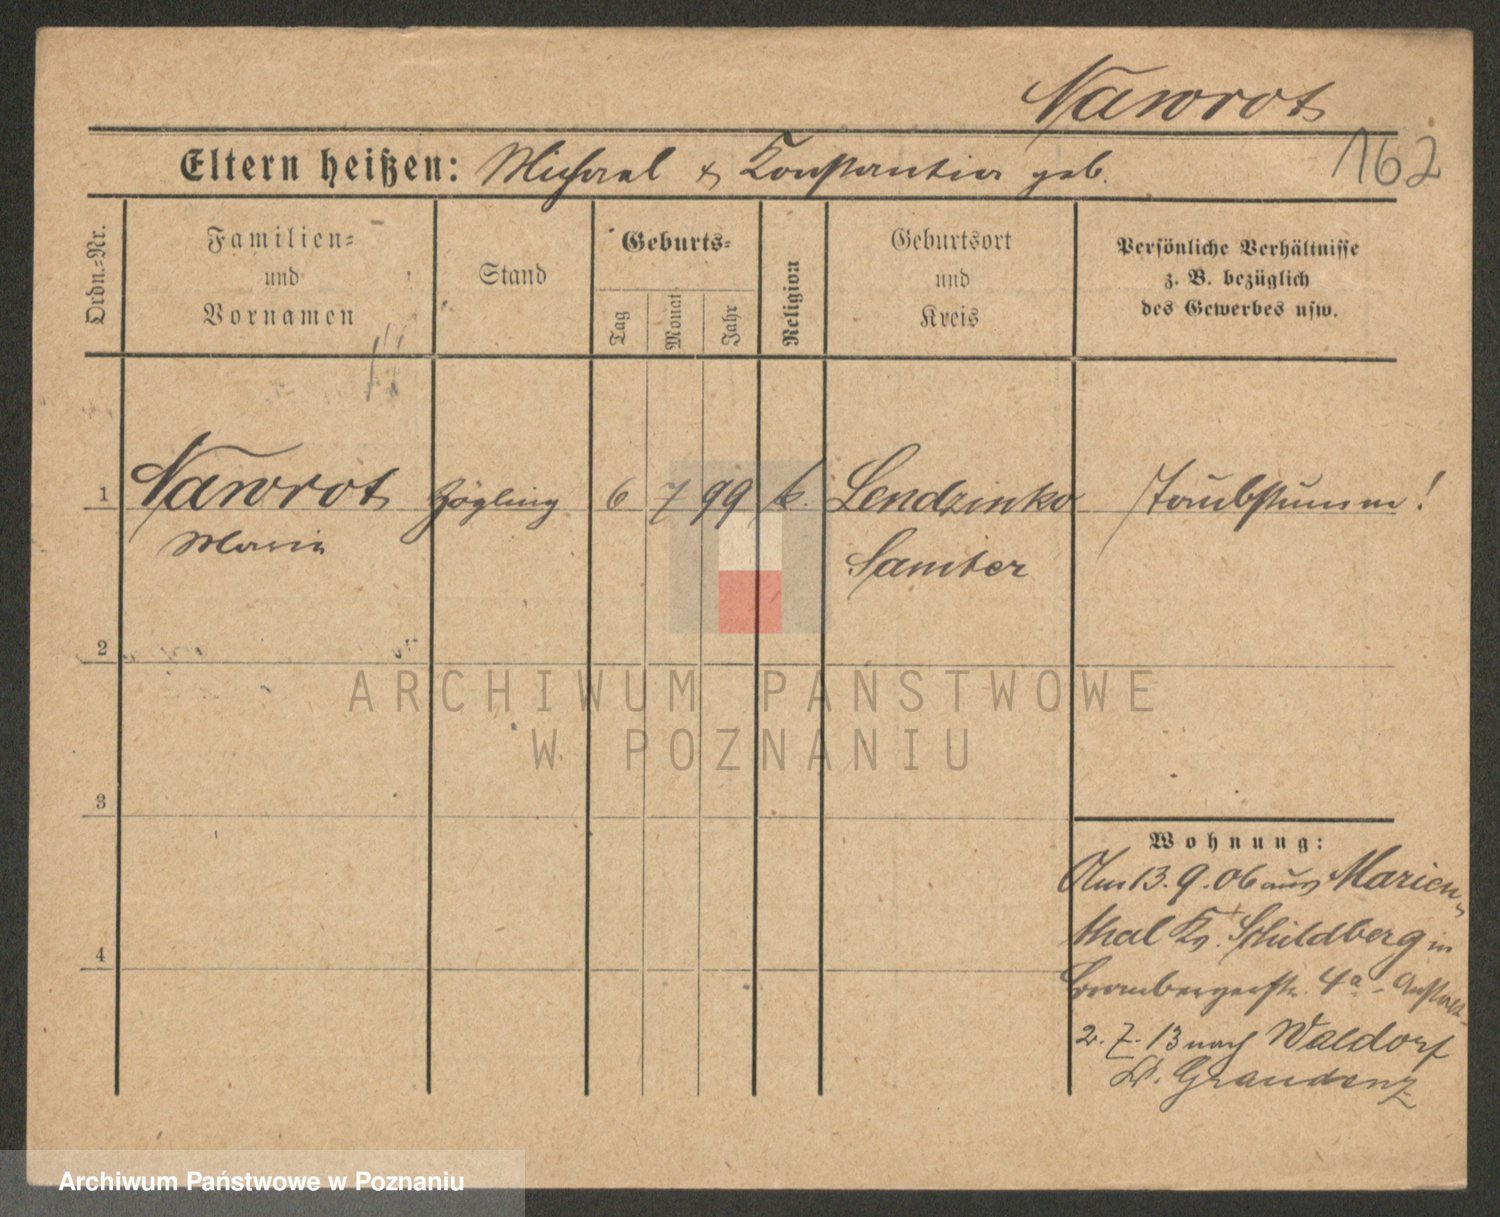 Nawrot
162
Eltern heißen: Michael & Konstantia geb.
Ordn.-Nr.
Familien-
und
Vornamen
Stand
Geburts-
Tag
Monat
Jahr
Religion
Geburtsort
und
Kreis
Persönliche Verhältnisse
z. B. bezüglich
des Gewerbes usw.
1 Nawrot Zögling 6 7 99 k. Lendzinko Taubstumm!
Maria Samter
2
ARCHIWUM PAŃSTWOWE
W POZNANIU
3
Wohnung:
Am 13.9.06 aus Marien-
thal Kr. Schildberg in
4
Brombergerstr. 4a - Anstalt
2.7.13 nach Waldorf
Kr. Graudenz
Archiwum Państwowe w Poznaniu